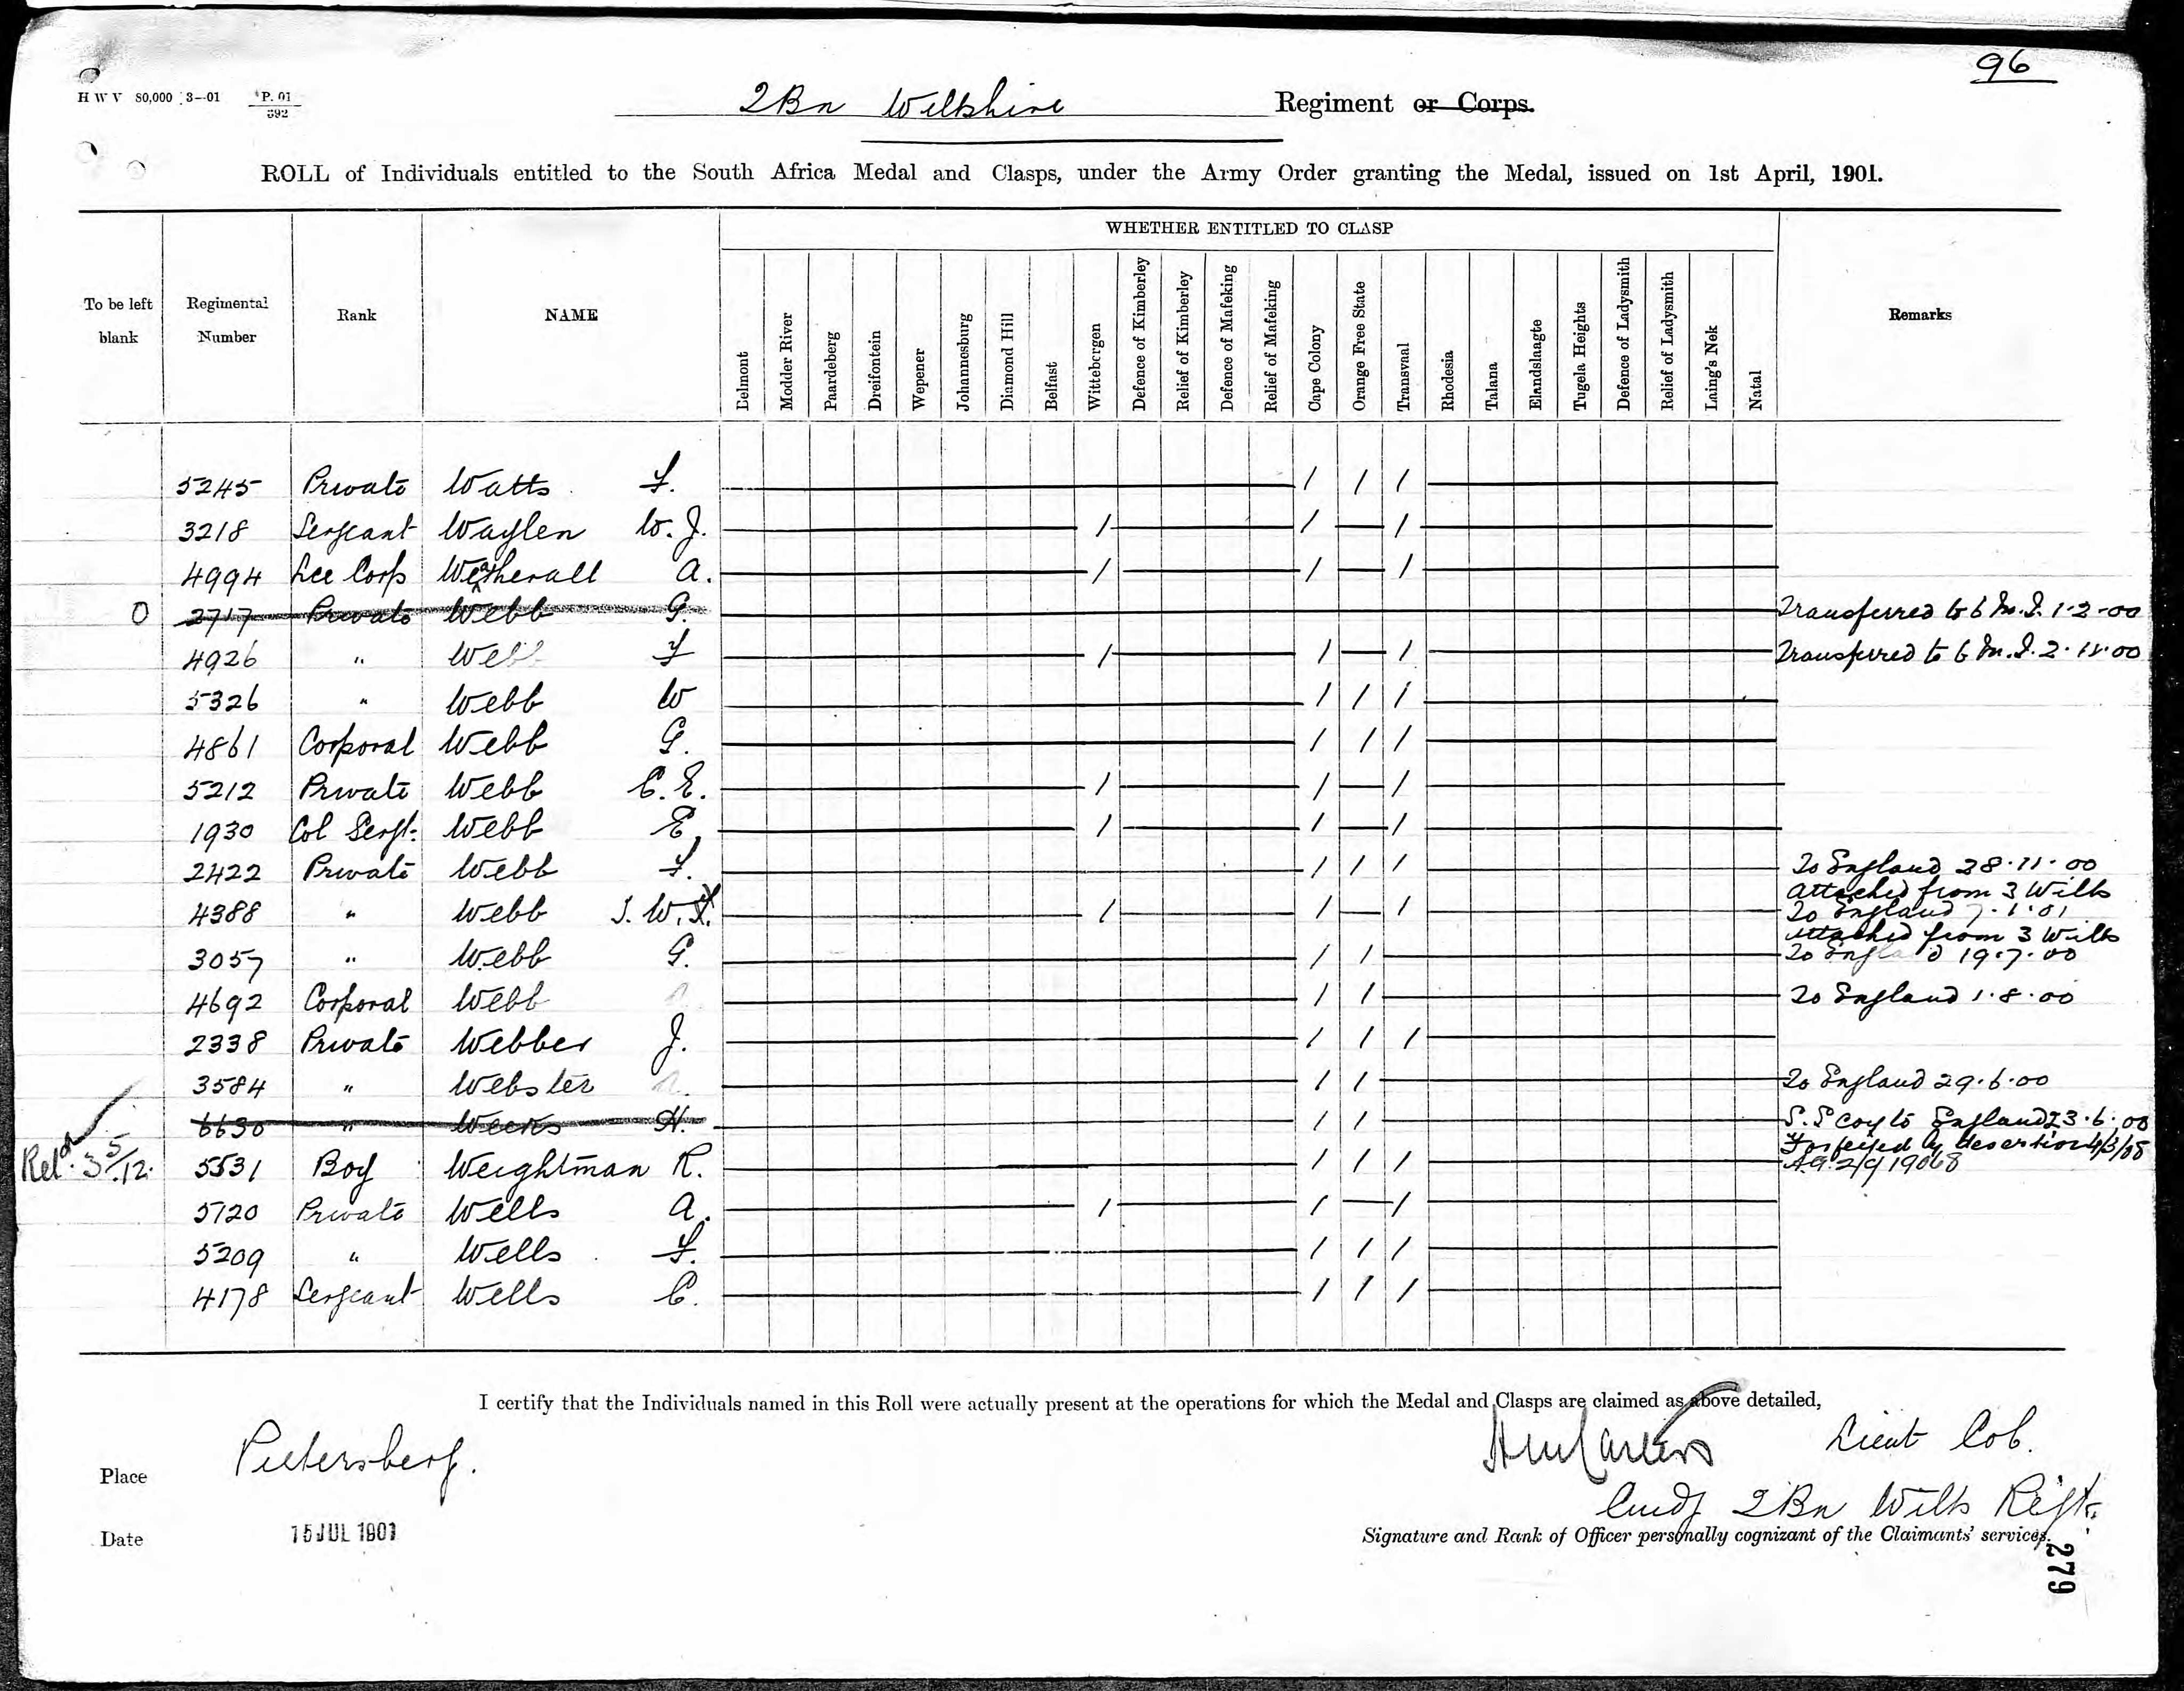 96
H W V 80,000 3--01 P. 01/592
2Bn Wiltshire Regiment or Corps.
ROLL of Individuals entitled to the South Africa Medal and Clasps, under the Army Order granting the Medal, issued on 1st April, 1901.
WHETHER ENTITLED TO CLASP
To be left blank
Regimental Number
Rank
NAME
Belmont
Modder River
Paardeberg
Dreifontein
Wepener
Johannesburg
Diamond Hill
Belfast
Wittebergen
Defence of Kimberley
Relief of Kimberley
Defence of Mafeking
Relief of Mafeking
Cape Colony
Orange Free State
Transvaal
Rhodesia
Talana
Elandslaagte
Tugela Heights
Defence of Ladysmith
Relief of Ladysmith
Laing's Nek
Natal
Remarks
5245 Private Watts F. / / /
3218 Sergeant Waylen W. J. / / /
4994 Lce Corp Weatherall A. / / /
0 2717 Private Webb G. Transferred to 6 M.I. 1-2-00
4926 " Webb F / / / Transferred to 6 M.I. 2.11.00
5326 " Webb W / / /
4861 Corporal Webb G. / / /
5212 Private Webb C. E. / / /
1930 Col Sergt. Webb E. / / /
2422 Private Webb F. / / / To England 28.11.00
attached from 3 Wilts
4388 " Webb J. W. F. / / / To England 7.1.01
attached from 3 Wilts
3057 " Webb G. / / To England 19.7.00
4692 Corporal Webb / / To England 1.8.00
2338 Private Webber J. / / /
3584 " Webster / / To England 29.6.00
6630 " Weeks H. / / S.S Coy to England 23.6.00
Forfeited by desertion 4/3/08
Reld. 3 5/12. 5531 Boy Weightman R. / / / A.G. 2/9 19068
5720 Private Wells A. / / /
5209 " Wells F. / / /
4178 Sergeant Wells C. / / /
I certify that the Individuals named in this Roll were actually present at the operations for which the Medal and Clasps are claimed as above detailed,
Place Pietersberg.
Lieut Col.
Cmdg 2Bn Wilts Regt.
Date 15 JUL 1901
Signature and Rank of Officer personally cognizant of the Claimants' services.
279